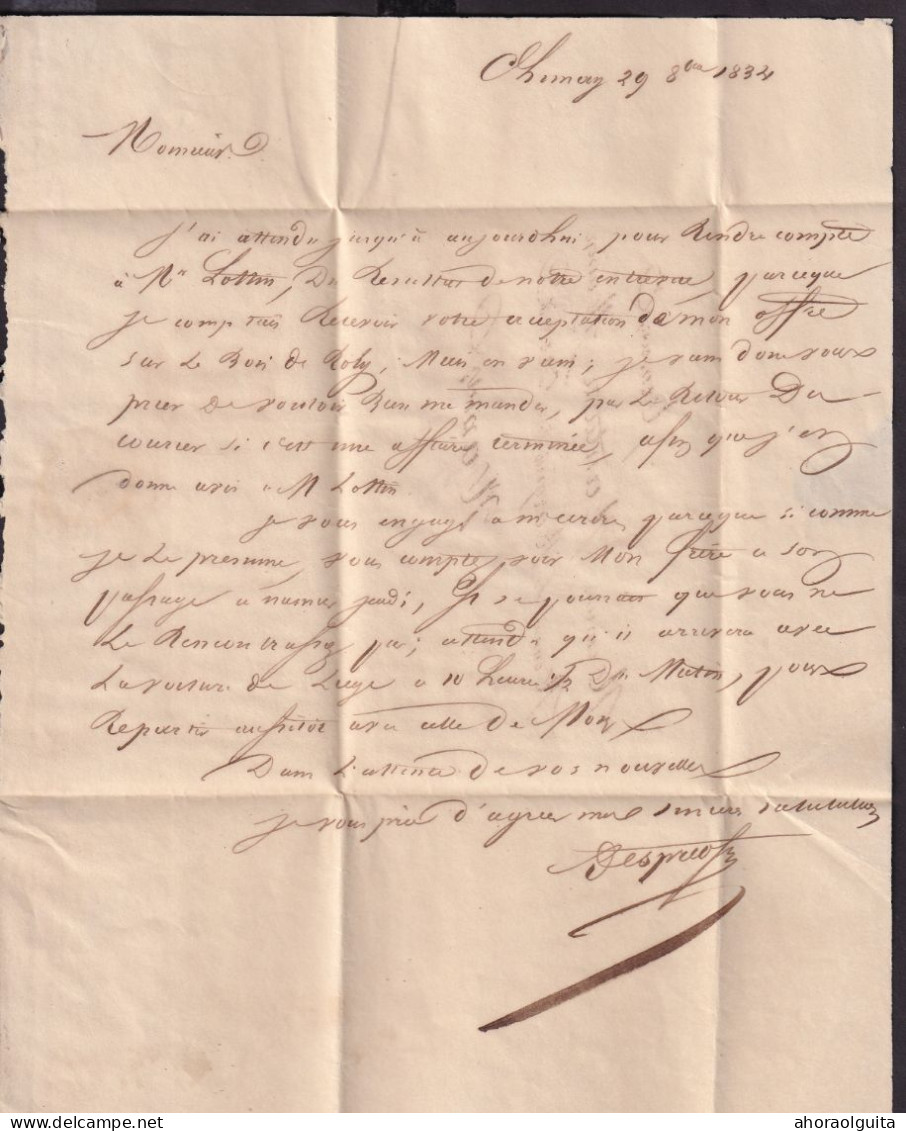 Chimay 29 8bre 1834
Monsieur
J'ai attendu jusqu'à aujourdhui pour Rendre compte
à Mr Lottin, Du Resultat de notre entrevue, parceque
je comptais Recevoir votre acceptation de mon offre
sur Le Bois de Roly, Mais en vain; je viens donc vous
prier De vouloir Bien me mander, par Le Retour Du
courier si c'est une affaire terminée, afin que j'en
donne avis à M Lottin
je vous engage à m'ecrire parceque si comme
je Le présume, vous comptez voir Mon frère a son
passage a namur jeudi, Il se pourrait que vous ne
Le Rencontrassiez pas; attendu qu'il arrivera avec
La voiture de Liege a 10 heures 1/2 Du Matin, pour
Repartir aussitôt avec celle De Mons
Dans L'attente De vos nouvelles
je vous prie d'agréer mes sincères salutations